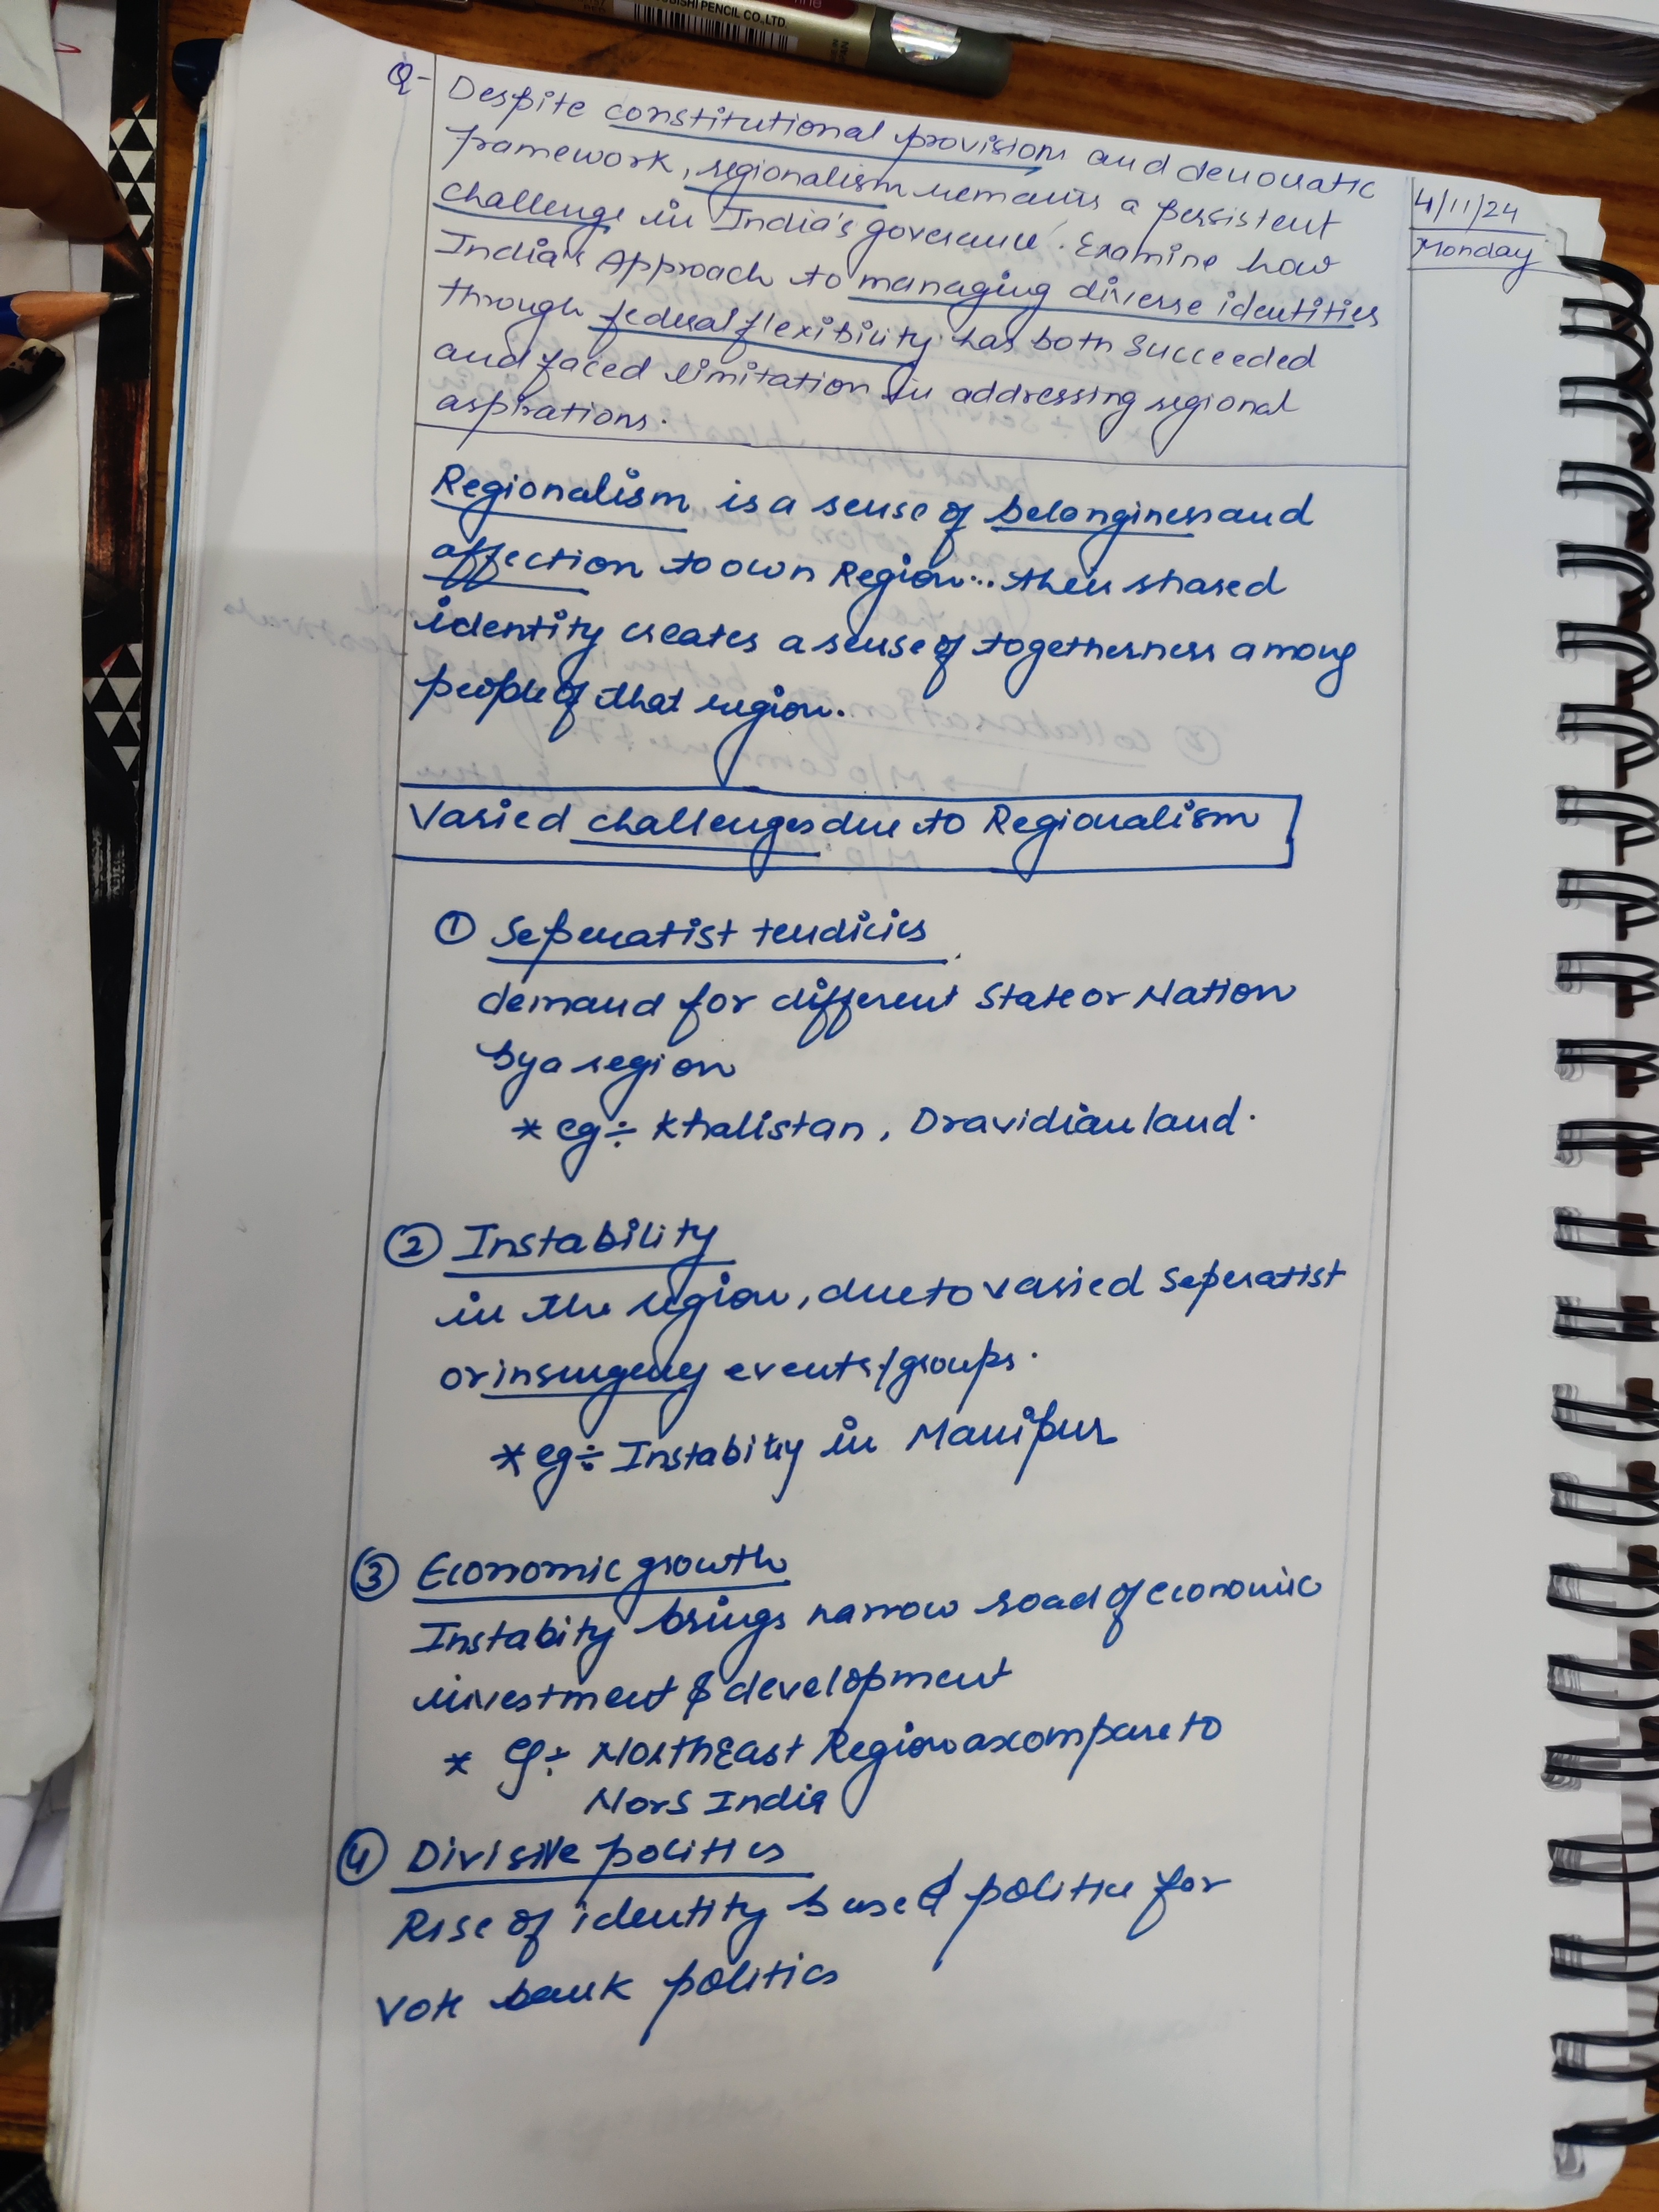 MITSUBISHI PENCIL CO.,LTD.
Q- Despite constitutional provisions and democratic
framework, regionalism remains a persistent
challenge in India's governance. Examine how
India's Approach to managing diverse identities
through federal flexibility has both succeeded
and faced limitation in addressing regional
aspirations.
4/11/24
Monday
Regionalism is a sense of belonginess and
affection to own Region... their shared
identity creates a sense of togetherness among
people of that region.
Varied challenges due to Regionalism
① Seperatist tendicies
demand for different State or Nation
by a region
* eg ÷ Khalistan, Dravidian land.
② Instability
in the region, due to varied Seperatist
or insurgency events/groups.
* eg ÷ Instability in Manipur
③ Economic growth
Instabity brings narrow road of economic
investment & development
* eg ÷ NorthEast Region as compare to
N or S India
④ Divisive politics
Rise of identity based politics for
vote bank politics